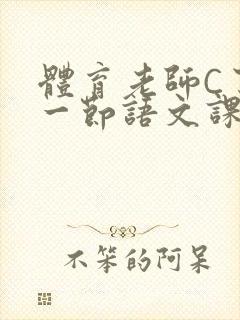 體育老師C
一節語文課
不笨的阿呆